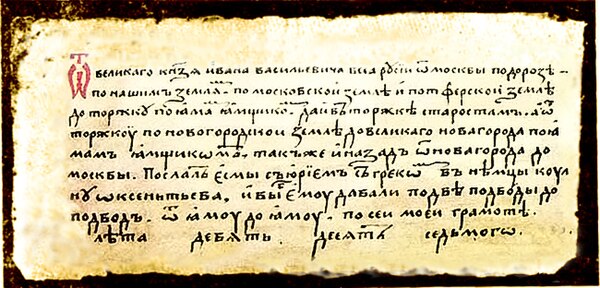 Ѿ великаго кнзѧ ивана васильевича всеа русіи ѿ москвы по дорозѣ
по нашимъ землѧмъ по московской землѣ и по тферской землѣ
до торжку по ꙗмомъ ꙗмщикомъ да и въ торжкѣ старостамъ. а ѿ
торжкоу по новогородской землѣ до великаго новагорода по ꙗ
мамъ ꙗмщикомъ, такъже и назадъ ѿ новагорода до
москвы. Послалъ есмы съ юріемъ съ грекомъ въ нѣмцы коул
ку ѡксентьева, и вы бъ емоу давали по двѣ подводы до
подводъ. ѿ ꙗмоу до ꙗмоу. по сеи моеи грамотѣ.
лѣта девять десятъ седьмого